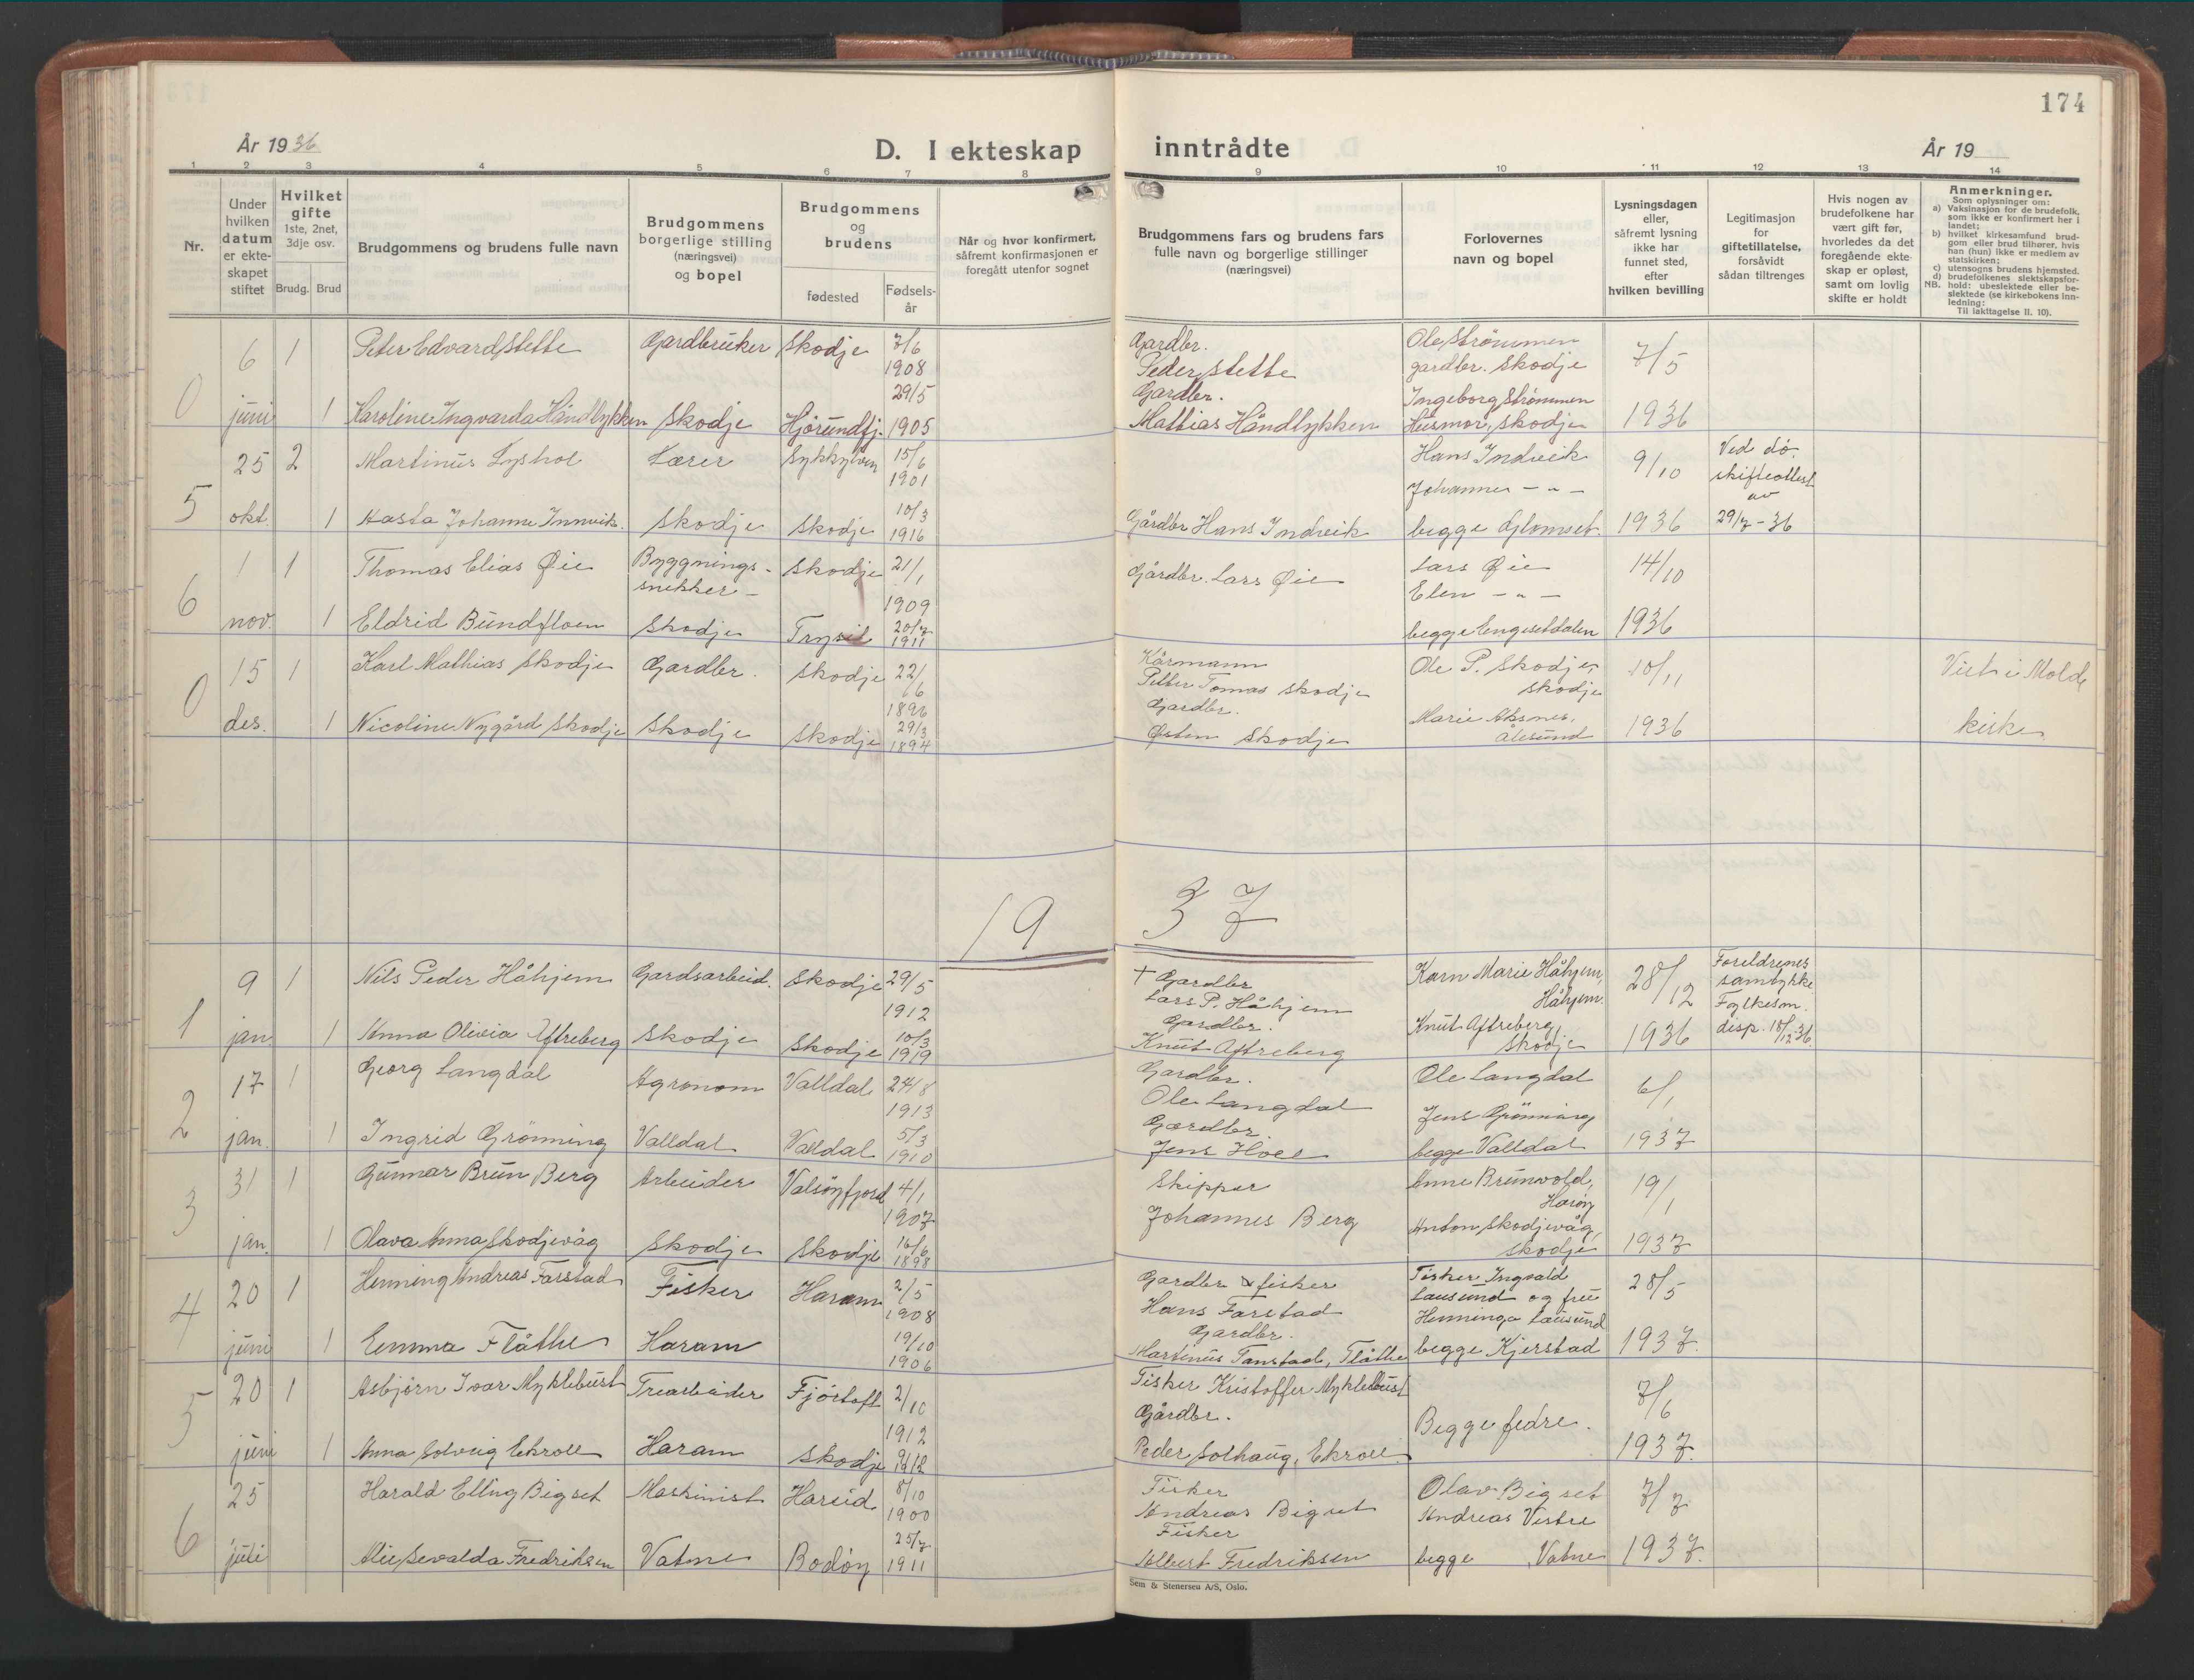 174
År 1936
D. I ekteskap
inntrådte
År 19
1 2 3 4 5 6 7 8
9 10 11 12 13 14
Nr.
Under
hvilken
datum
er ekte-
skapet
stiftet
Hvilket
gifte
1ste, 2net,
3dje osv.
Brudg. Brud
Brudgommens og brudens fulle navn
Brudgommens
borgerlige stilling
(næringsvei)
og bopel
Brudgommens
og
brudens
fødested
Fødsels-
år
Når og hvor konfirmert,
såfremt konfirmasjonen er
foregått utenfor sognet
Brudgommens fars og brudens fars
fulle navn og borgerlige stillinger
(næringsvei)
Forlovernes
navn og bopel
Lysningsdagen
eller,
såfremt lysning
ikke har
funnet sted,
efter
hvilken bevilling
Legitimasjon
for
giftetillatelse,
forsåvidt
sådan tiltrenges
Hvis nogen av
brudefolkene har
vært gift før,
hvorledes da det
foregående ekte-
skap er opløst,
samt om lovlig
skifte er holdt
Anmerkninger.
Som oplysninger om:
a) Vaksinasjon for de brudefolk,
som ikke er konfirmert her i
landet;
b) hvilket kirkesamfund brud-
gom eller brud tilhører, hvis
han (hun) ikke er medlem av
statskirken;
c) utensogns brudens hjemsted.
d) brudefolkenes slektskapsfor-
hold: ubeslektede eller be-
slektede (se kirkebokens inn-
ledning:
NB.
Til iakttagelse II. 10).
0 6 juni 1 Peter Edvard Stette Gardbruker Skodje 7/6 1908
Gardbr. Peder Stette Ole Strømmen gardbr. Skodje 7/5
1 Karoline Ingvarda Håndlykken Skodje Hjørundfj. 29/5 1905
Gardbr. Mathias Håndlykken Ingeborg Strømmen Husmor, Skodje 1936
5 25 okt. 2 Martinus Lyshol Lærer Sykkylven 15/6 1901
Hans Indreik 9/10 Ved dó.
Johannes - " - skifteattest av
1 Aasta Johanne Innvik. Skodje Skodje 10/3 1916
Gårdbr Hans Indreik begge Glomset. 1936 29/7-36
6 1 nov. 1 Thomas Elias Øie Byggnings-snekker - Skodje 21/1 1909
Gårdbr. Lars Øie Lars Øie 14/10
Elen - " -
1 Eldrid Bundfloen Skodje Trysil 20/7 1911
begge Engesetdalen 1936
0 15 des. 1 Karl Mathias Skodje Gardbr. Skodje 22/6 1896
Kårmann Petter Tomas Skodje Ole P. Skodje, Skodje 10/11 Viet i Molde
1 Nicoline Nygård Skodje Skodje Skodje 29/3 1894
Gardbr. Østen Skodje Marie Aksnes, Ålesund 1936 kirke
19 37
1 9 jan. 1 Nils Peder Håhjem Gardsarbeid. Skodje 29/5 1912
+ Gardbr Lars P. Håhjem Karn Marie Håhjem, Håhjem. 28/12 Foreldrenes samtykke
1 Anna Olivia Aftreberg Skodje Skodje 10/3 1919
Gardbr. Knut Aftreberg Knut Aftreberg, Skodje 1936 Fylkesm. disp. 18/12-36.
2 17 jan. 1 Georg Langdal Agronom Valldal 24/8 1913
Gardbr. Ole Langdal Ole Langdal 6/1
1 Ingrid Grönning Valldal Valldal 5/3 1910
Gardbr Jens Hoel Jens Grönning begge Valldal 1937
3 31 jan. 1 Gunnar Brun Berg Arbeider Valsöyfjord 4/1 1907
Skipper Johannes Berg Anne Brunvold, Haröy 19/1
1 Olava Anna Skodjevåg Skodje Skodje 16/6 1898
Anton Skodjevåg, Skodje 1937
4 20 juni 1 Henning Andreas Farstad Fisker Haram 2/5 1908
Gardbr & fisker Hans Farstad Fisker Ingvald Lausund og frue 28/5
1 Emma Flåthe Haram 19/10 1906
Gardbr. Martinus Tanstad, Flåthe Henninga Lausund begge Kjerstad 1937.
5 20 juni 1 Asbjørn Ivar Myklebust Trearbeider Fjörtoft 2/10 1912
Fisker Kristoffer Myklebust 7/6
1 Anna Solveig Ekroll Haram Skodje 1912
Gårdbr. Peder Solhaug, Ekroll. Begge fedre. 1937.
6 25 juli Harald Elling Bigset Maskinist Hareid 8/10 1900
Fisker Andreas Bigset Olav Bigset 7/7
Alie Sevalda Fredriksen Vatne Bodöy 25/7 1911
Fisker Albert Fredriksen Andreas Vestre begge Vatne 1937.
Sem & Stenersen A/S, Oslo.